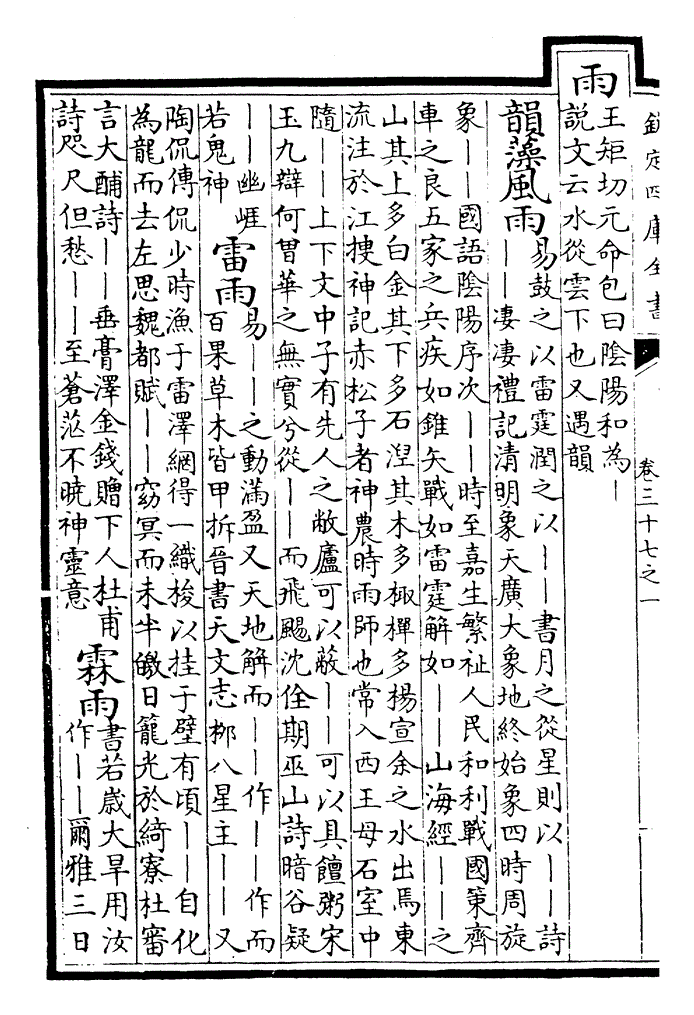 欽定四庫全書
卷三十七之一
雨
王矩切元命包曰陰陽和為｜
說文云水從雲下也又遇韻
韻藻風雨
易鼓之以雷霆潤之以｜｜書月之從星則以｜｜詩
｜｜凄凄禮記清明象天廣大象地終始象四時周旋
象｜｜國語陰陽序次｜｜時至嘉生繁祉人民和利戰國策齊
車之良五家之兵疾如錐矢戰如雷霆解如｜｜山海經｜｜之
山其上多白金其下多石湼其木多棷樿多楊宣余之水出焉東
流注於江搜神記赤松子者神農時雨師也常入西王母石室中
隨｜｜上下文中子有先人之敝廬可以蔽｜｜可以具饘粥宋
玉九辯何曽華之無實兮從｜｜而飛颺沈佺期巫山詩暗谷疑
｜｜幽崕
若鬼神
雷雨
易｜｜之動滿盈又天地解而｜｜作｜｜作而
百果草木皆甲拆晉書天文志栁八星主｜｜又
陶侃傳侃少時漁于雷澤網得一織梭以挂于壁有頃｜｜自化
為龍而去左思魏都賦｜｜窈冥而未半皦日籠光於綺寮杜審
言大酺詩｜｜垂膏澤金錢贈下人杜甫
詩咫尺但愁｜｜至蒼茫不曉神靈意
霖雨
書若歲大旱用汝
作｜｜爾雅三日